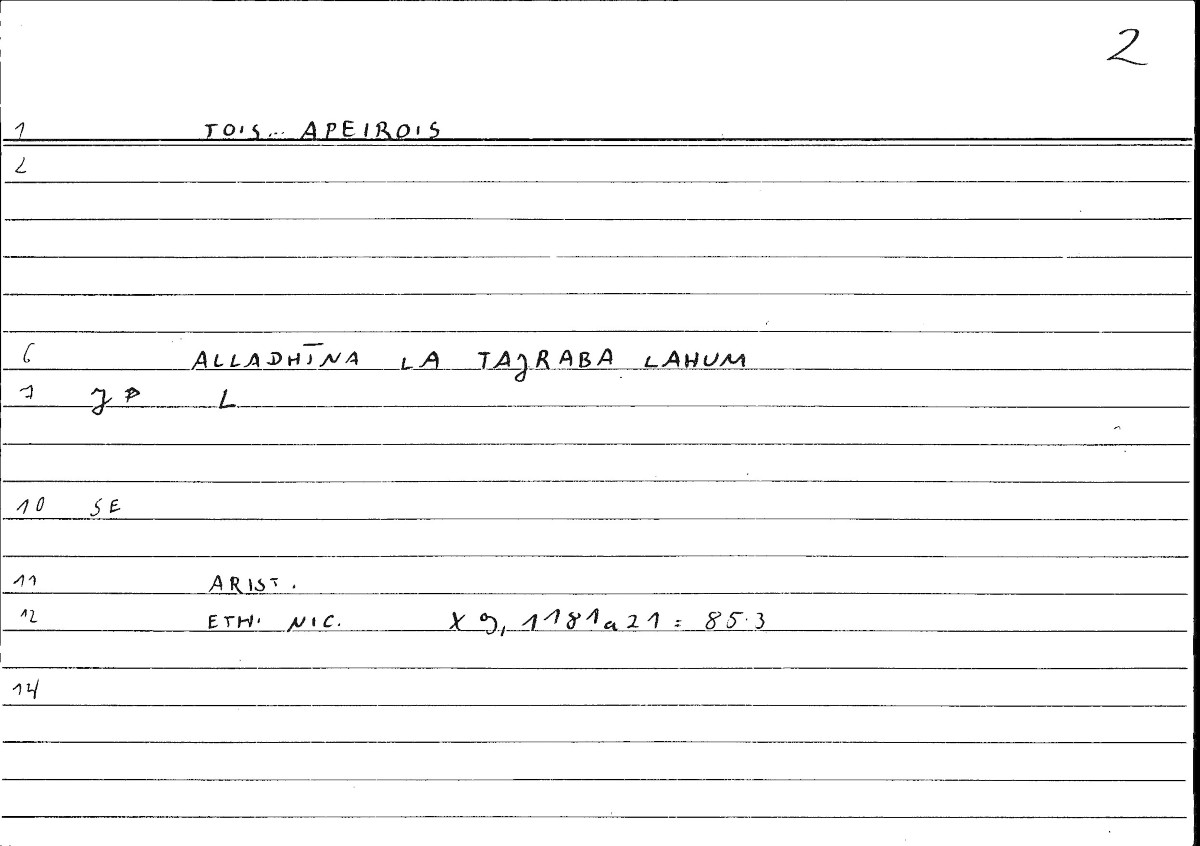 2
1 TOIS... APEIROIS
2
6 ALLADHĪNA LA TAJRABA LAHUM
7 J L
10 SE
11 ARIST.
12 ETH. NIC. X 9, 1181a21 = 85.3
14